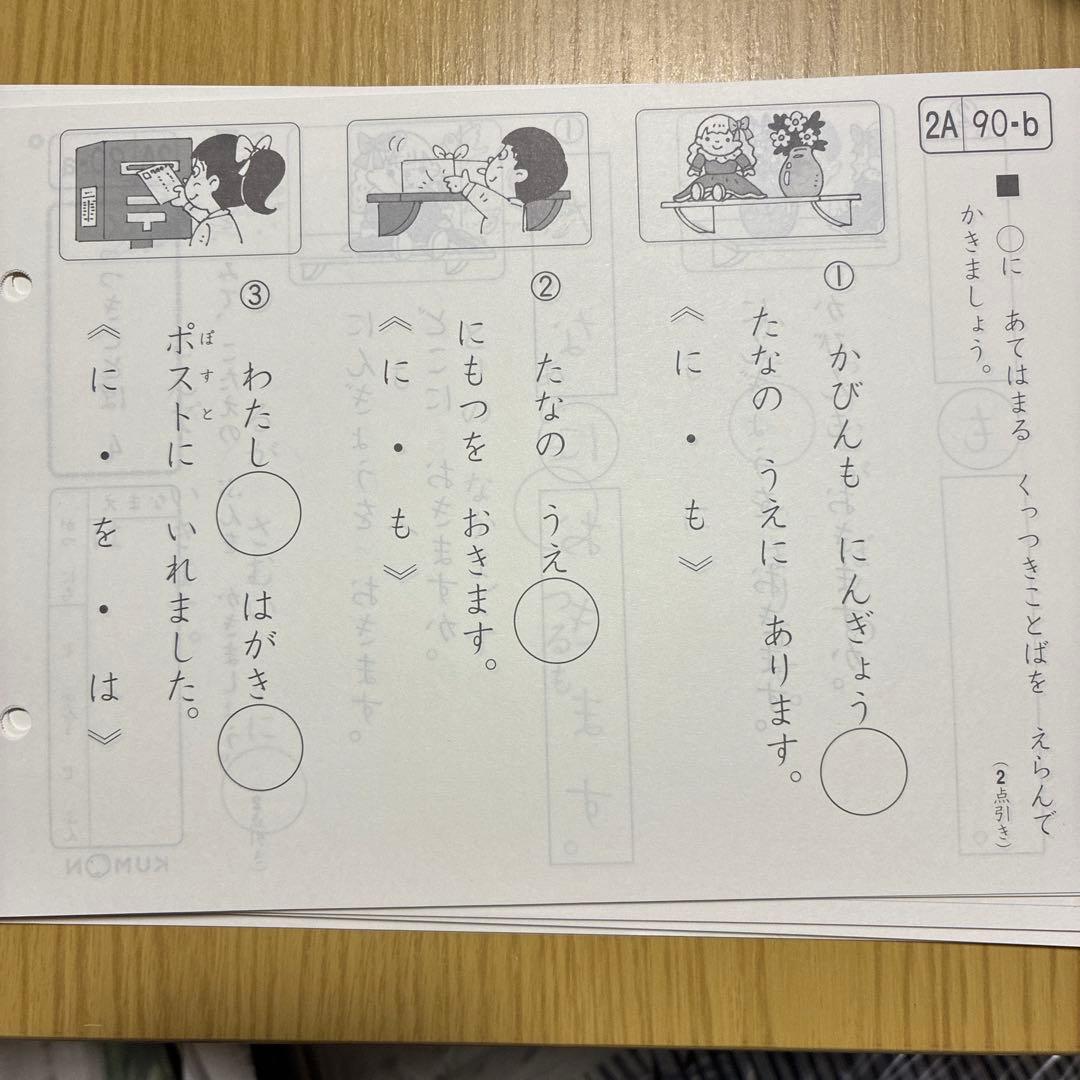 2A 90-b
■ ○に あてはまる くっつきことばを えらんで
かきましょう。
(2点引き)
① かびんも にんぎょう○
たなの うえに あります。
《に ・ も》
② たなの うえ○
にもつを おきます。
《に ・ も》
③ わたし○ はがき○
ポストに いれました。
ぽすと
《に ・ を ・ は》
KUMON